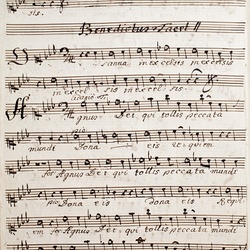 sis.
Benedictus Tacet
Osanna in excelsis in excelsis
in excelsis in excelsis.
Agnus Dei qui tollis peccata
mundi Dona eis requiem
Agnus Dei qui tollis peccata mundi
Dona eis dona eis Requi
em Agnus Dei qui tollis peccata